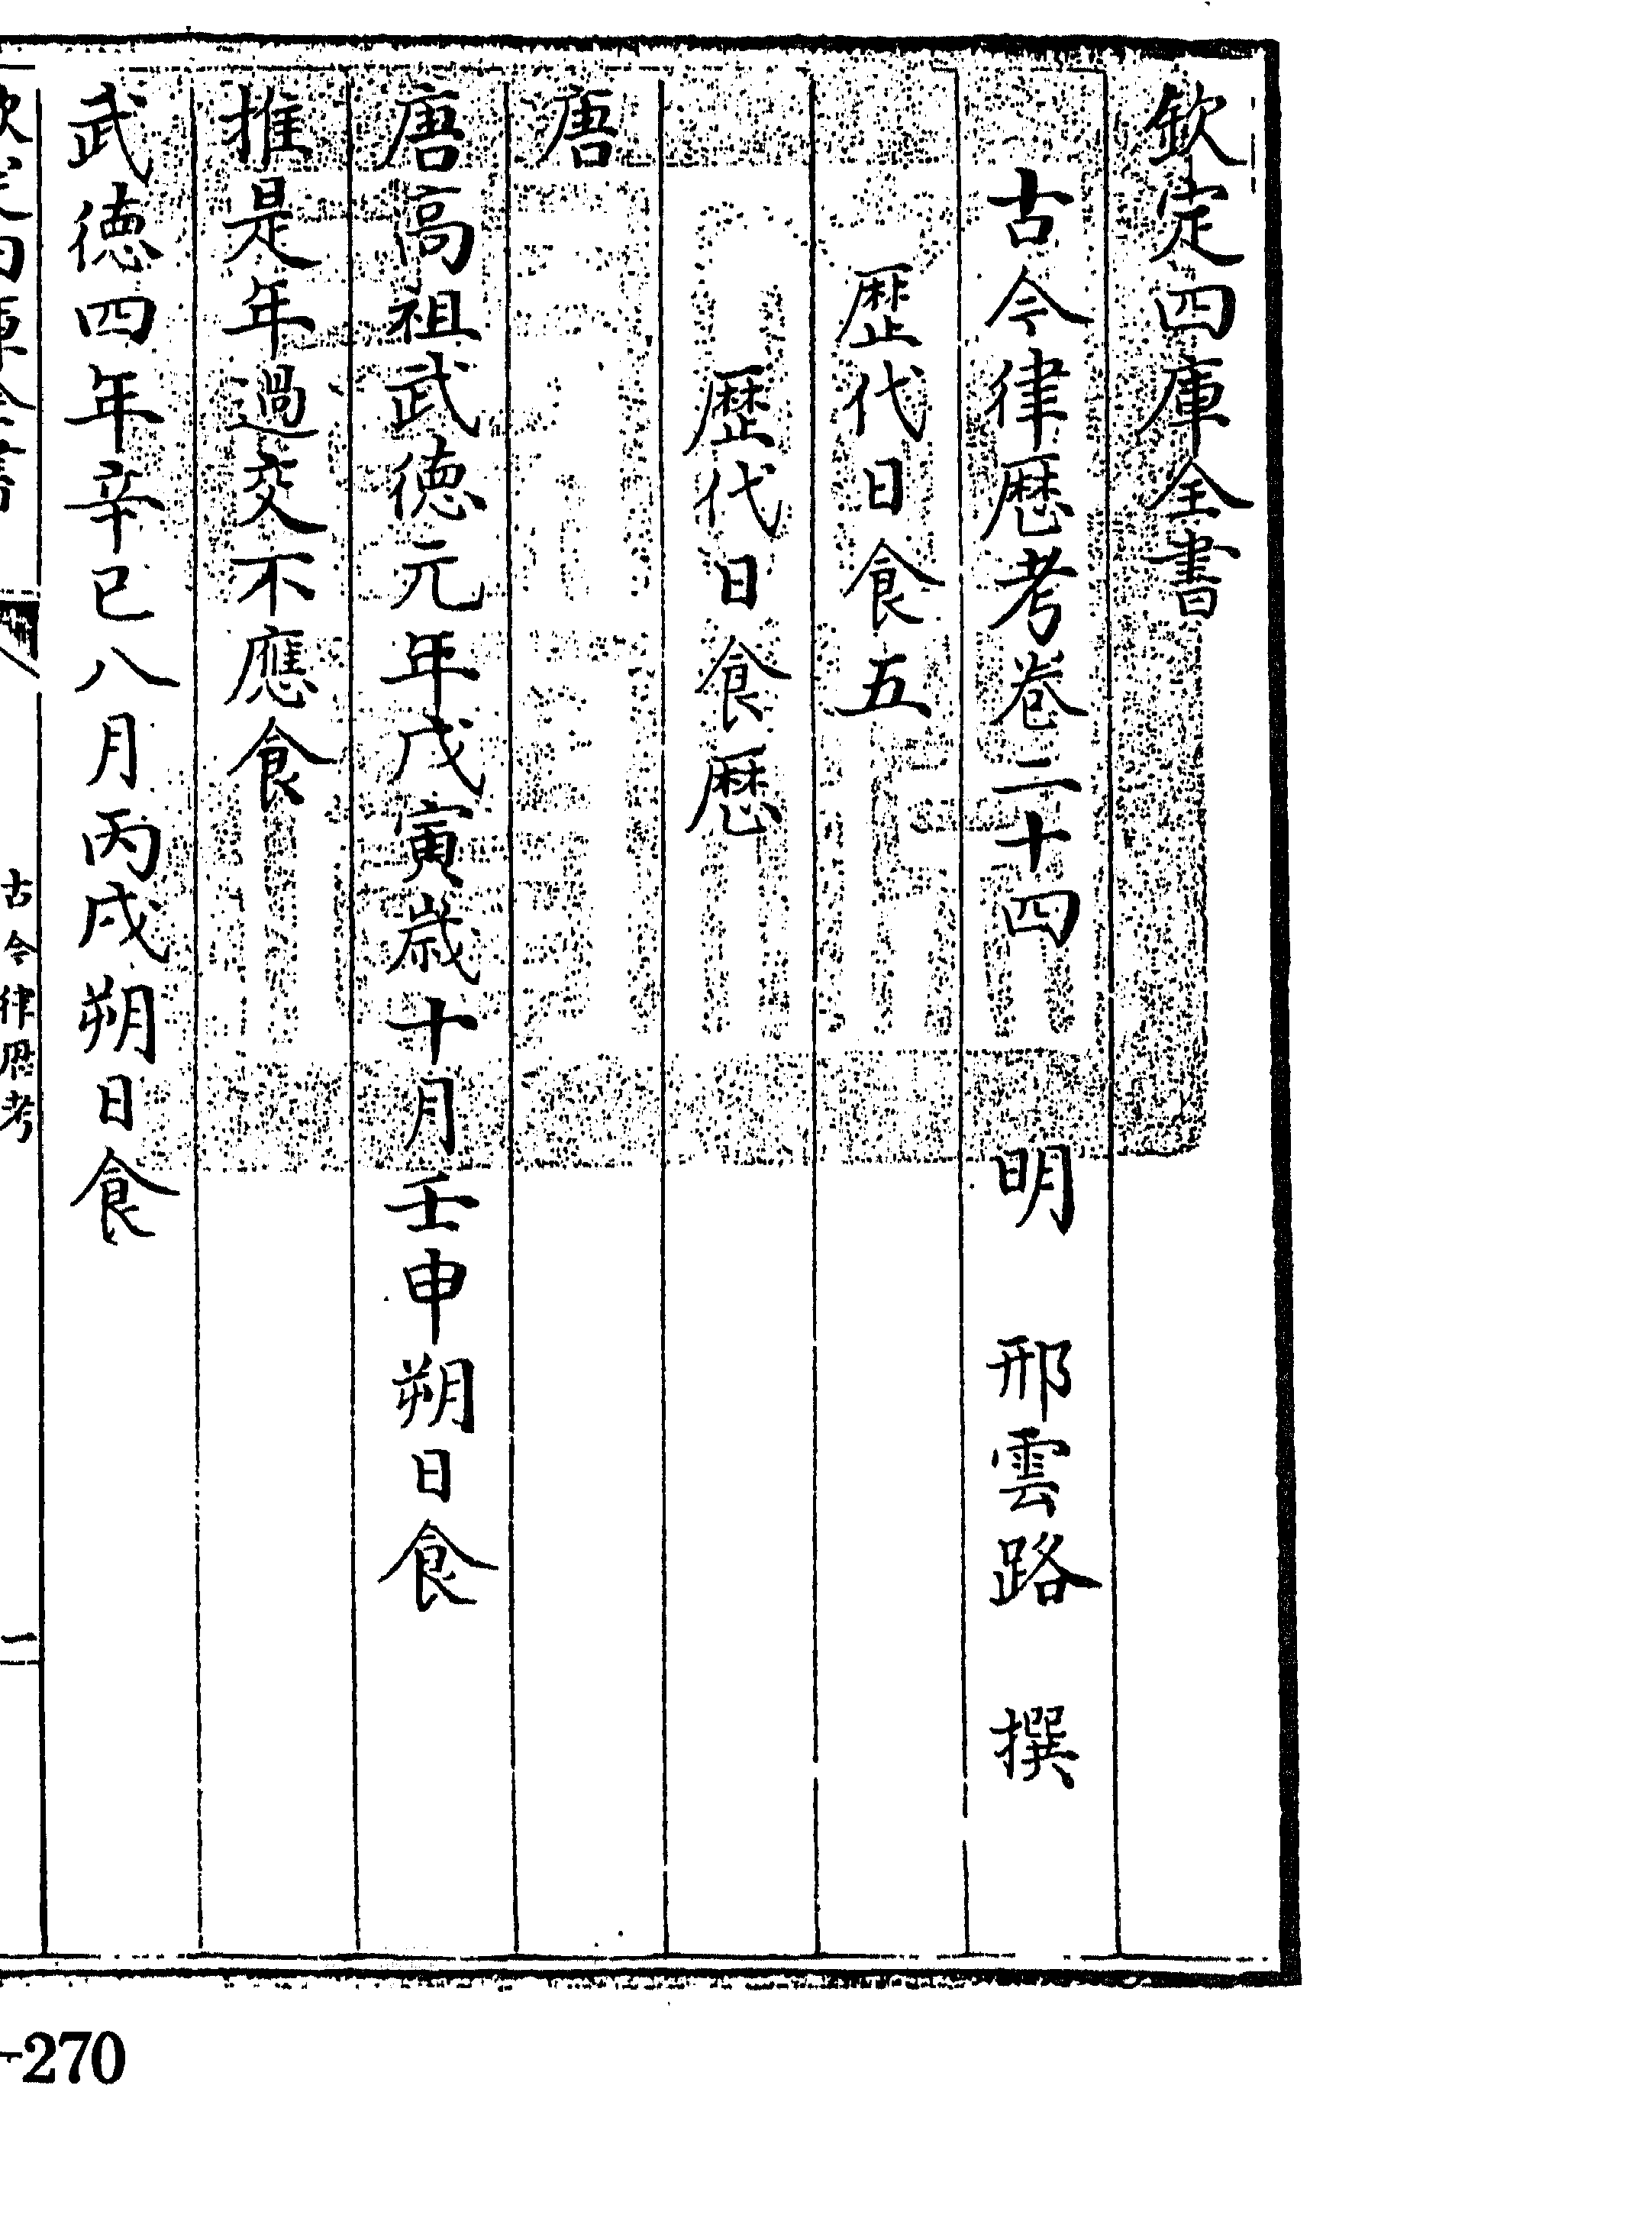 欽定四庫全書
古今律厯考卷二十四 明 邢雲路 撰
歴代日食五
歴代日食厯
唐
唐高祖武徳元年戊寅嵗十月壬申朔日食
推是年過交不應食
武徳四年辛巳八月丙戌朔日食
古今律厯考
一
-270